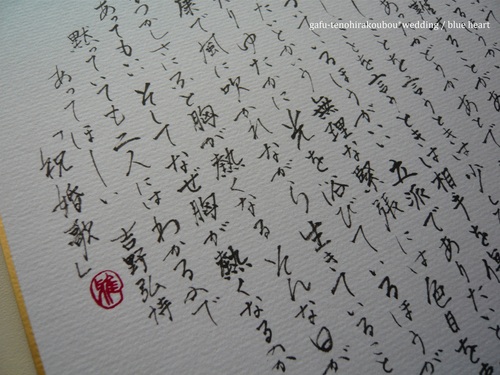 gafu-tenohirakoubou*wedding / blue heart
ことを言うときは 少し
ことを言うときは 相手を傷
いるほうがいい 立派でありたい
とかいう 無理な緊張には 色目を
たりゆたかに 光を浴びているほうが
康で風に吹かれながら 生きていること
つかしさにふと胸が熱くなる そんな日が
あってもいい そしてなぜ胸が熱くなるのか
黙っていても二人には わかるので
あってほしい 吉野弘詩
「祝婚歌」